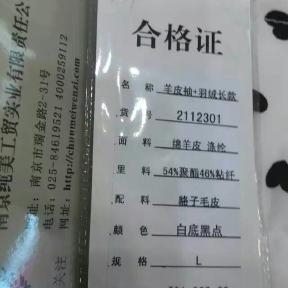 合格证
名 称 羊皮袖+羽绒长款
货 号 2112301
面 料 绵羊皮 涤纶
里 料 54%聚酯46%粘纤
配 料 貉子毛皮
颜 色 白底黑点
规 格 L
南京纯美工贸实业有限责任公
地址：南京市瑞金路2-31号
电话：025-84619521 4000259112
网址：http://chunmeiwenzi.com
关注